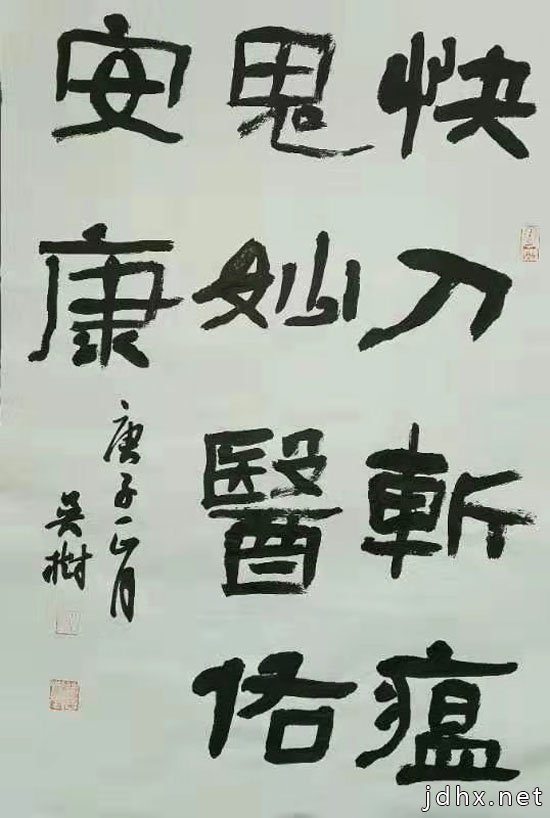 快刀斬瘟
鬼妙醫佑
安康
庚子正月
吴樹
jdhx.net